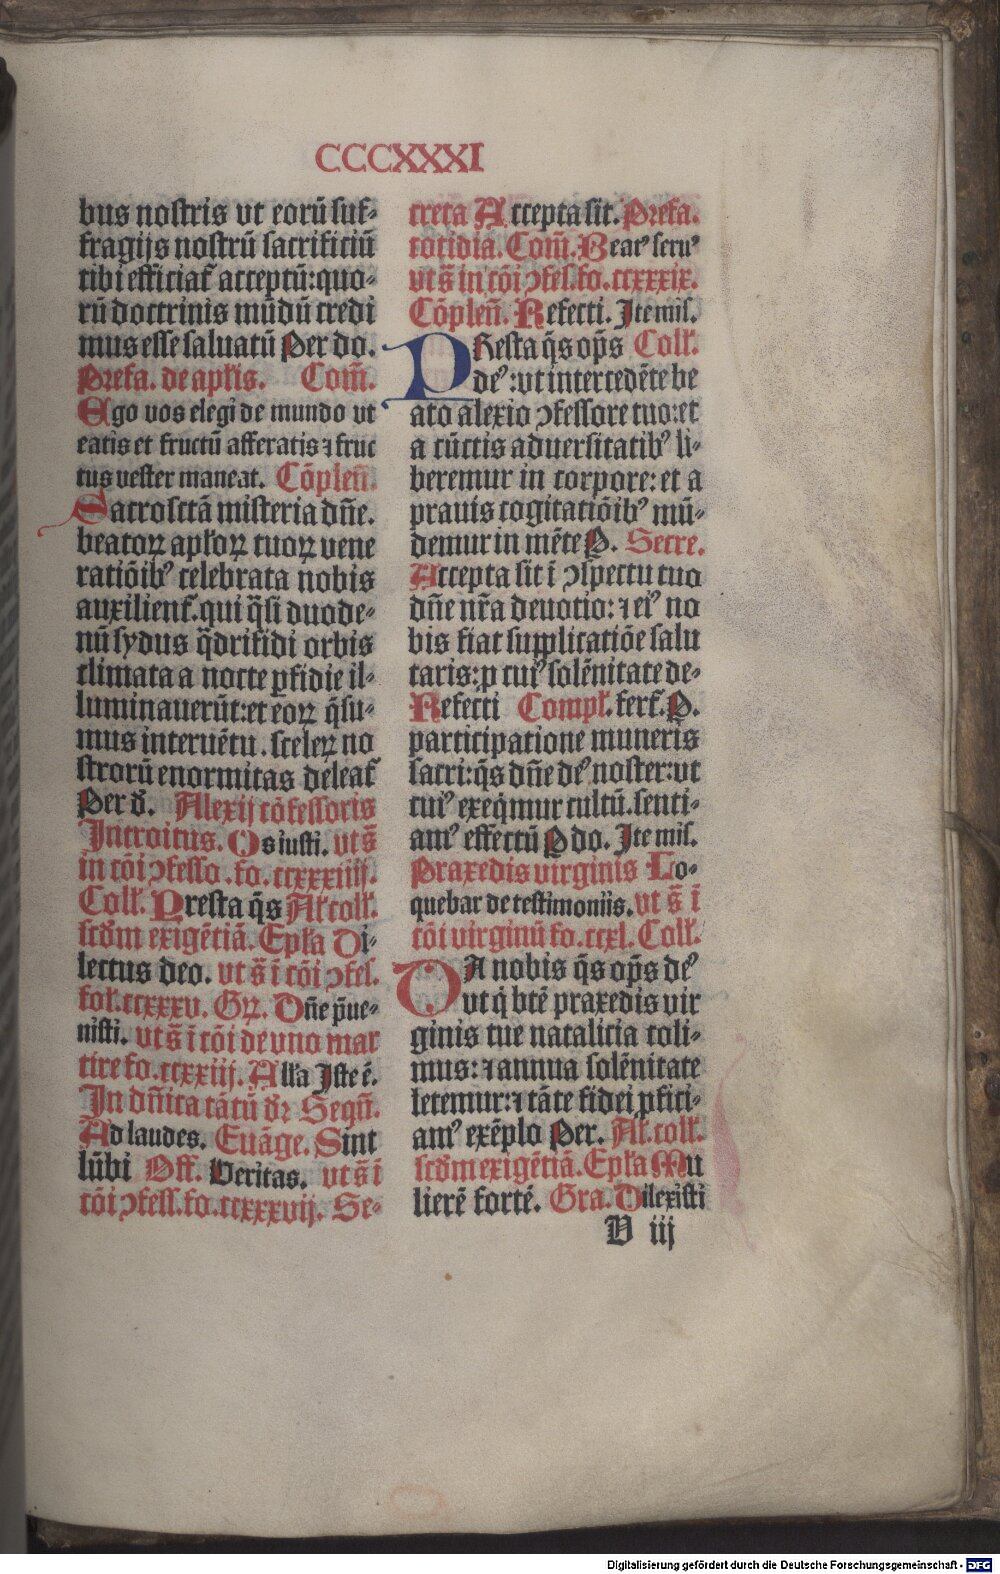 CCCXXXI
bus nostris vt eorū suf-
fragijs nostrū sacrificiū
tibi efficiat᷑ acceptū:quo-
rū doctrinis mūdū credi
mus esse saluatū Per do.
Prefa. de apl'is. Com̄.
Ego vos elegi de mundo vt
eatis et fructū afferatis ⁊ fruc
tus vester maneat. Cōplen̄.
Sacrosctā misteria dn̄e.
beatoꝝ apl'oꝝ tuoꝝ vene
ratiōibꝰ celebrata nobis
auxilient᷑.qui q̄si duode-
nū sydus q̄drifidi orbis
climata a nocte ꝑfidie il-
luminauerūt:et eoꝝ q̄su-
mus interuētu.sceleꝝ no
strorū enormitas deleat᷑
Per d'. Alexij cōfessoris
Introitus. Os iusti. vt s̄
in cōi ꝯfesso.fo.ccxxxiiij.
Coll'. Presta q̄s Al'.coll'.
scd'm exigētiā. Epl'a Di-
lectus deo. vt s̄ ī cōi ꝯfes.
fol'.ccxxxv. Gꝝ. Dn̄e p̄ue-
nisti. vt s̄ ī cōi de vno mar
tire fo.ccxxiij. All'a Iste ē.
In dn̄ica tātū d'ꝛ Seqū.
Ad laudes. Euāge. Sint
lūbi Off. Veritas. vt s̄ ī
cōi ꝯfess.fo.ccxxxvij. Se-
creta Accepta sit. Prefa.
cotidia. Com̄. Beatꝰ seruꝰ
vt s̄ in cōi ꝯfes.fo.ccxxxix.
Cōplen̄. Refecti. Ite mis.
PResta q̄s op̄s Coll'.
deꝰ:vt intercedēte be
ato alexio ꝯfessore tuo:et
a cūctis aduersitatibꝰ li-
beremur in corpore:et a
prauis cogitatiōibꝰ mū-
demur in mēte P. Secre.
Accepta sit ī ꝯspectu tuo
dn̄e nr̄a deuotio:⁊ eiꝰ no
bis fiat supplicatiōe salu
taris:ꝓ cuiꝰ solēnitate de-
Refecti Compl'. fert᷑.P.
participatione muneris
sacri:q̄s dn̄e deꝰ noster:vt
cuiꝰ exeq̄mur cultū.senti-
amꝰ effectū P do. Ite mis.
Praxedis virginis Lo-
quebar de testimoniis. vt s̄ ī
cōi virginū fo.ccxl. Coll'.
DA nobis q̄s op̄s deꝰ
vt q̇ btē praxedis vir
ginis tue natalicia coli-
mus:⁊ annua solēnitate
letemur:⁊ tāte fidei ꝓfici-
amꝰ exēplo Per. Al'.coll'.
scd'm exigētiā. Epl'a Mu
lierē fortē. Gra. Dilexisti
V iij
Digitalisierung gefördert durch die Deutsche Forschungsgemeinschaft - DFG